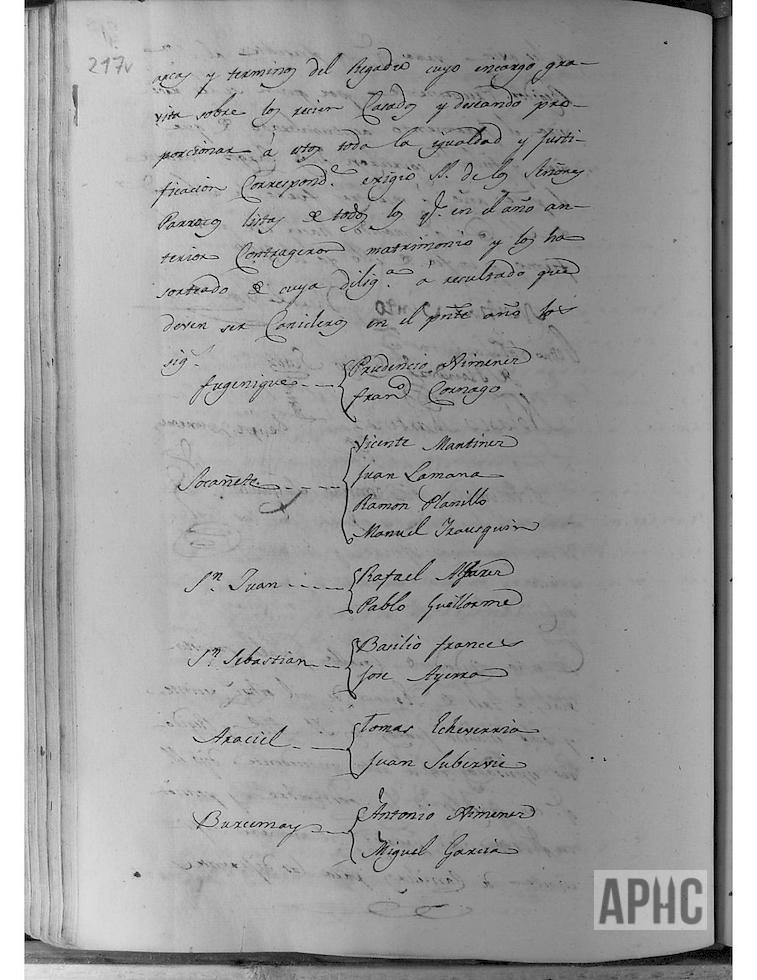 217v
arcas y terminos del Regadio cuyo encargo gra-
vita sobre los recien Casados y deseando pro-
porcionar à estos toda la igualdad y justi-
ficacion Correspond.te exigió S.S. de los Señores
Parrocos listas de todos los q.e en el año an-
terior Contrageron matrimonio y los ha
sorteado de cuya dilig.a à resultado que
deven ser Cavileros en el pnte año los
sig.s
Fugenique --- Prudencio Ximenez
Fran.co Cornago
Socañete ---- Vicente Martinez
Juan Lamana
Ramon Planillo
Manuel Irausquin
S.n Juan ----- Rafael Alfarez
Pablo Guellorme
S.n Sebastian --- Basilio frances
Jose Ayerra
Araciel ---- Tomas Echeverria
Juan Subervie
Burcemay -- Antonio Ximenez
Miguel Garcia
APHC